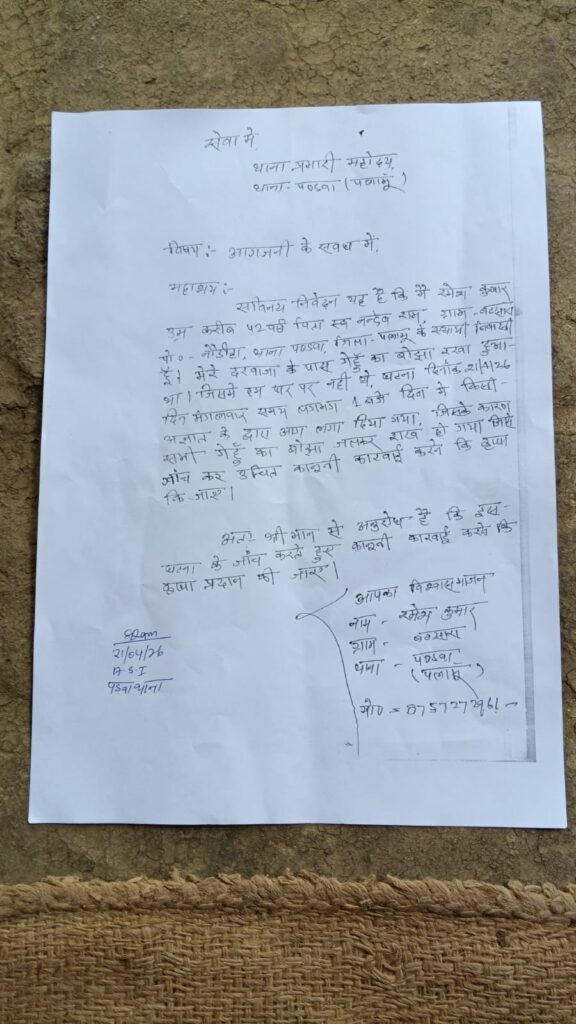 सेवा में,
थाना प्रभारी महोदय,
थाना - पण्डवा (पलामू)
विषय :- आगजनी के संबंध में,
महाशय :-
सविनय निवेदन यह है कि मैं रमेश कुमार
उम्र करीब 52 वर्ष पिता स्व नन्देव राम, ग्राम -
पो० - थाना पण्डवा, जिला - पलामू के स्थायी निवासी
हूँ। मेरे दरवाजा के पास गेहुँ का बोझा रखा हुआ
था। जिसमें हम घर पर नहीं थे, घटना दिनांक 21/4/26
दिन मंगलवार समय लगभग 1 बजे दिन में किसी
अज्ञात के द्वारा आग लगा दिया गया, जिसके कारण
सभी गेहुँ का बोझा जलकर राख हो गया
जाँच कर उचित कानूनी कारवाई करने कि कृपा
कि जाए।
अतः श्री मान से अनुरोध है कि इस
घटना के जाँच करते हुए कानूनी कारवाई करने कि
कृपा प्रदान की जाए।
आपका विश्वास भाजन
नाम - रमेश कुमार
ग्राम -
थाना - पण्डवा
(पलामू)
मो० =
21/04/26
A.S.I
पंडवा थाना